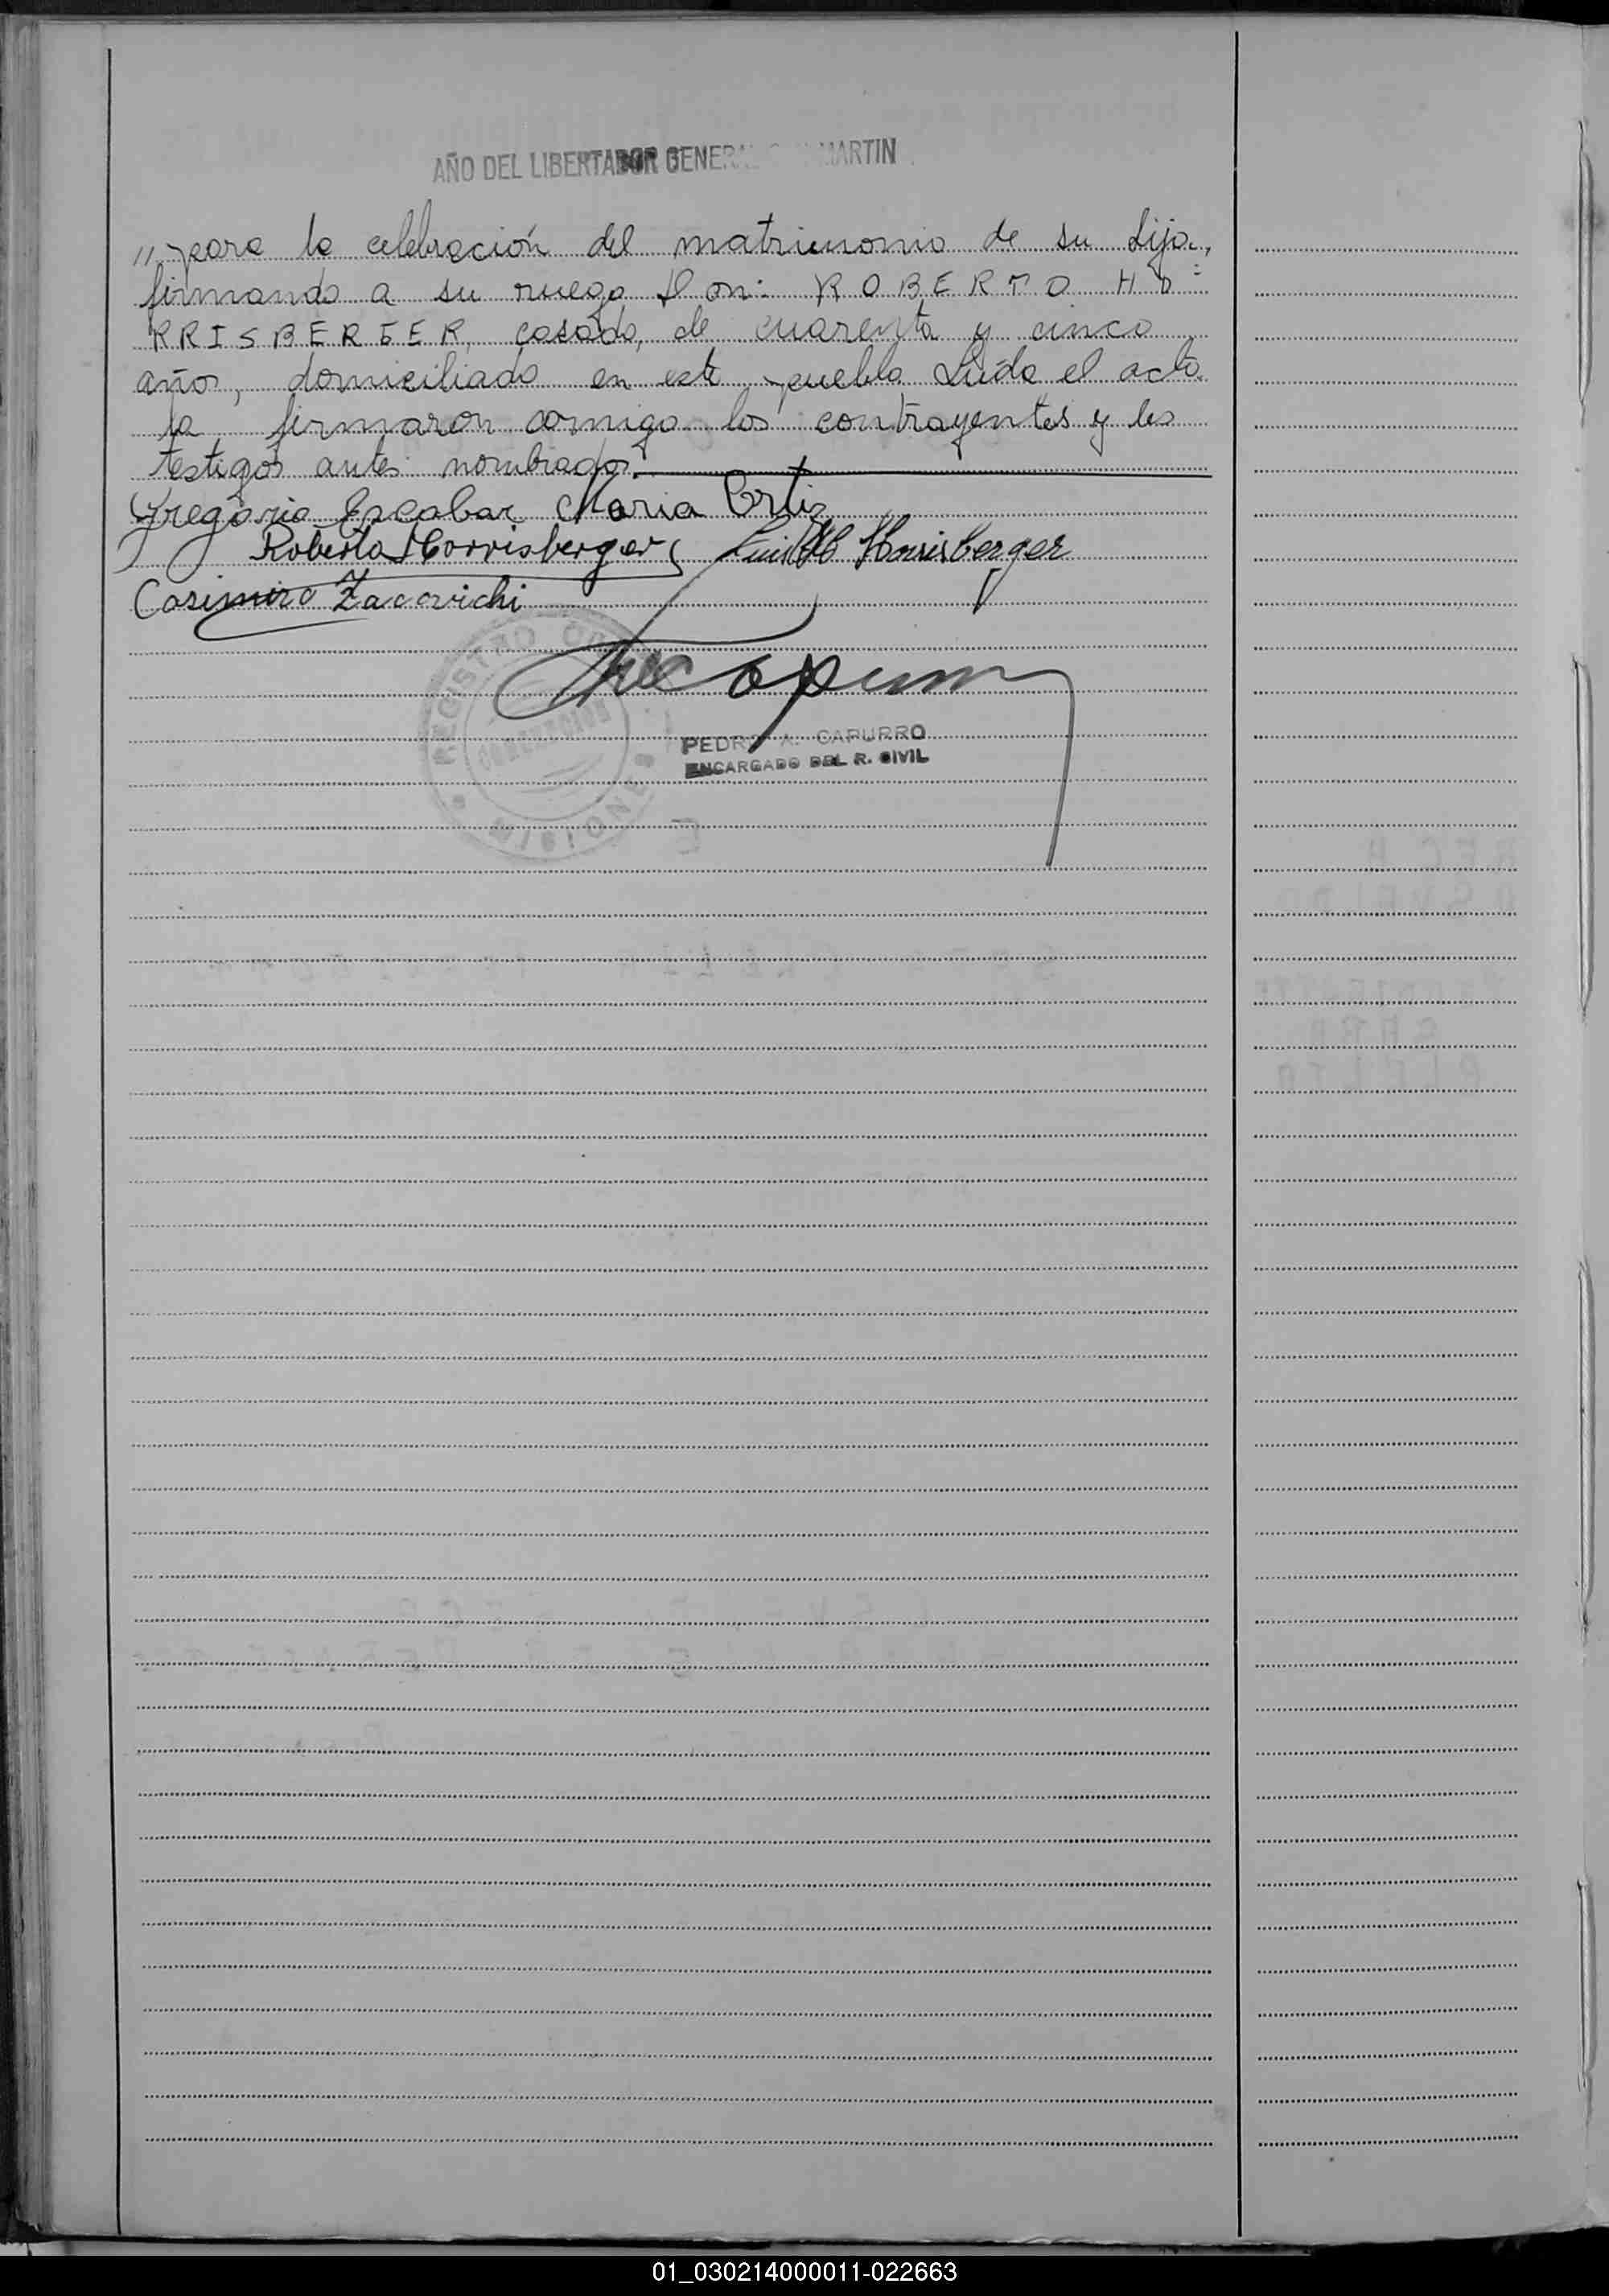 AÑO DEL LIBERTADOR GENERAL MARTIN
" para la celebración del matrimonio de su hija,
firmando a su ruego Don: ROBERTO HO=
RRISBERGER, casado, de cuarenta y cinco
años, domiciliado en este pueblo Leída el acta
la firmaron comigo los contrayentes y los
testigos antes nombrados.
Gregorio Escobar Maria Ortiz
Roberto Horrisberger Luis Horrisberger
Casimiro Zacovichi
REGISTRO
MISIONES
PEDRO A. CAPURRO
ENCARGADO DEL R. CIVIL
01_030214000011-022663